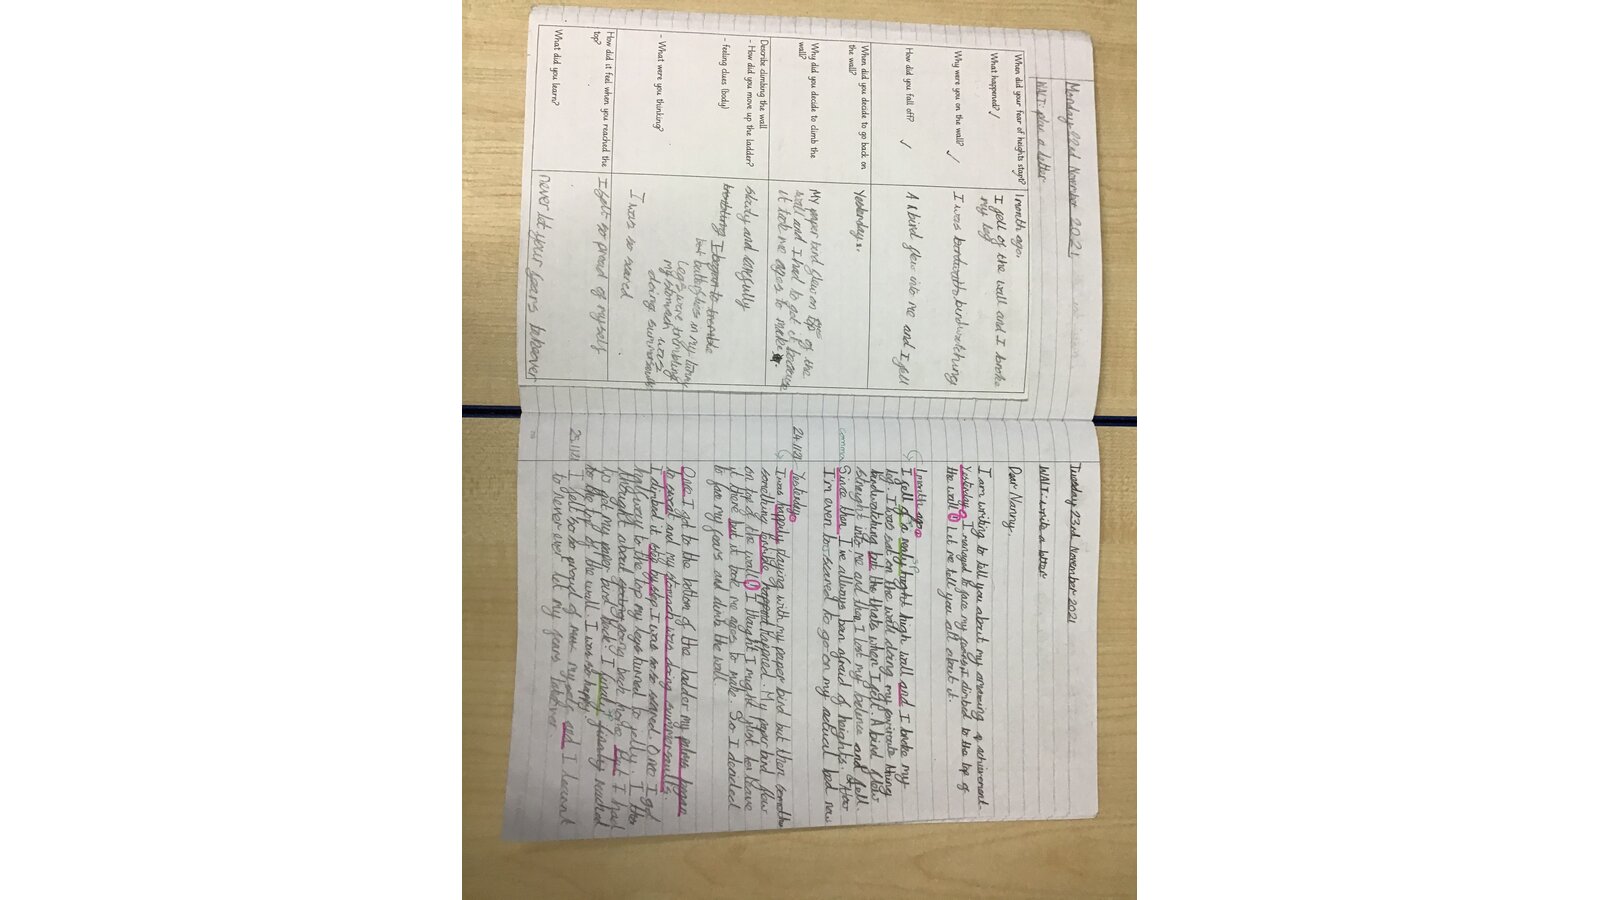 Monday 22nd November 2021
WALT: plan a letter
When did your fear of heights start?
1 month ago.
What happened? ✓
I fell of the wall and I broke
my leg
Why were you on the wall? ✓
I was birdwatching
How did you fall off? ✓
A bird flew into me and I fell
When did you decide to go back on
the wall?
Yesterday.
Why did you decide to climb the
wall?
My paper bird flew on top of the
wall and I had to get it because
it tok me ages to make.
Describe climbing the wall
- How did you move up the ladder?
slowly and carefully
- feeling clues (body)
I began to tremble
butterflies in my tummy
legs were trembling
my stomach was
doing summersaults
- What were you thinking?
I was so scared
How did it feel when you reached the
top?
I felt so proud of myself
What did you learn?
never let your fears takeover
Tuesday 23rd November 2021
WALT: write a letter
Dear Nanny,
I am writing to tell you about my amazing achievement.
Yesterday, I managed to face my fears I climbed to the top of
the wall! Let me tell you all about it.
1 month ago
I fell of a really hight high wall and I broke my
leg. I was sat on the wall doing my favirate thing
birdwatching but the thats when I felt. A bird flew
straight into me and then I lost my balence and fell.
comma
Since then, I've always been afraid of heights.
I'm even to scared to go on my actual bed now
24.11.21 Yesterday
I was happily playing with my paper bird but then somethin
something horrible happend happned. My paper bird flew
on top of the wall! I thought I might just leave
it there but it took me ages to make. So I decided
to face my fears and climb the wall
Once I got to the bottom of the ladder my palms began
to sweat and my stomach was doing summersaults.
I climbed it step by step. I was so so scared. Once I got
halfway to the top my legs turned to jelly. I then
thought about going back home but I had
to get my paper bird back! I finaly finally reached
to the top of the wall. I was so happy.
25.11.21 I felt so so proud of my self and I learnt
to never ever let my fears takover.